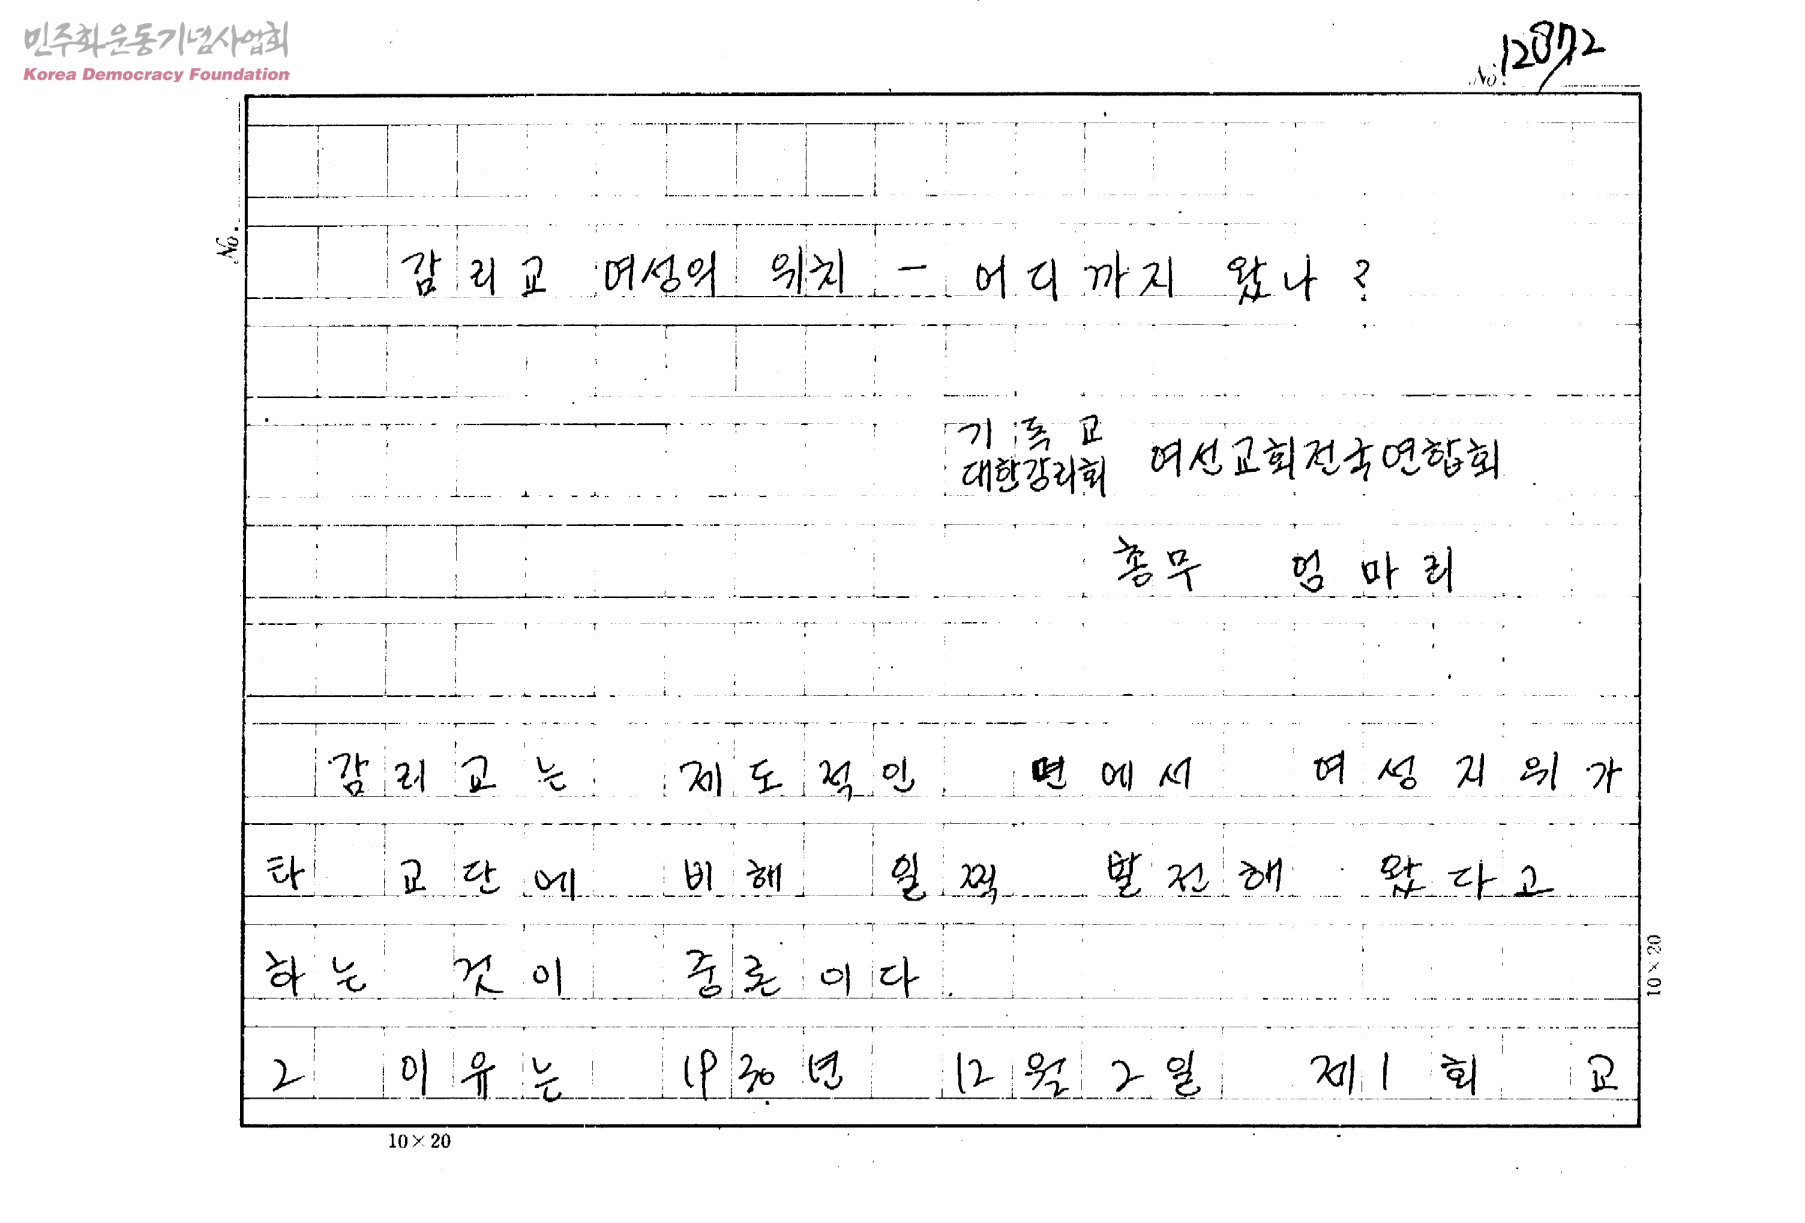 민주화운동기념사업회
Korea Democracy Foundation
No. 12872
No.
감리교 여성의 위치 - 어디까지 왔나?
기독교
대한감리회 여선교회전국연합회
총무 엄마리
감리교는 제도적인 면에서 여성지위가
타 교단에 비해 일찍 발전해 왔다고
하는 것이 중론이다
그 이유는 1930년 12월 2일 제1회 교
10×20
10×20